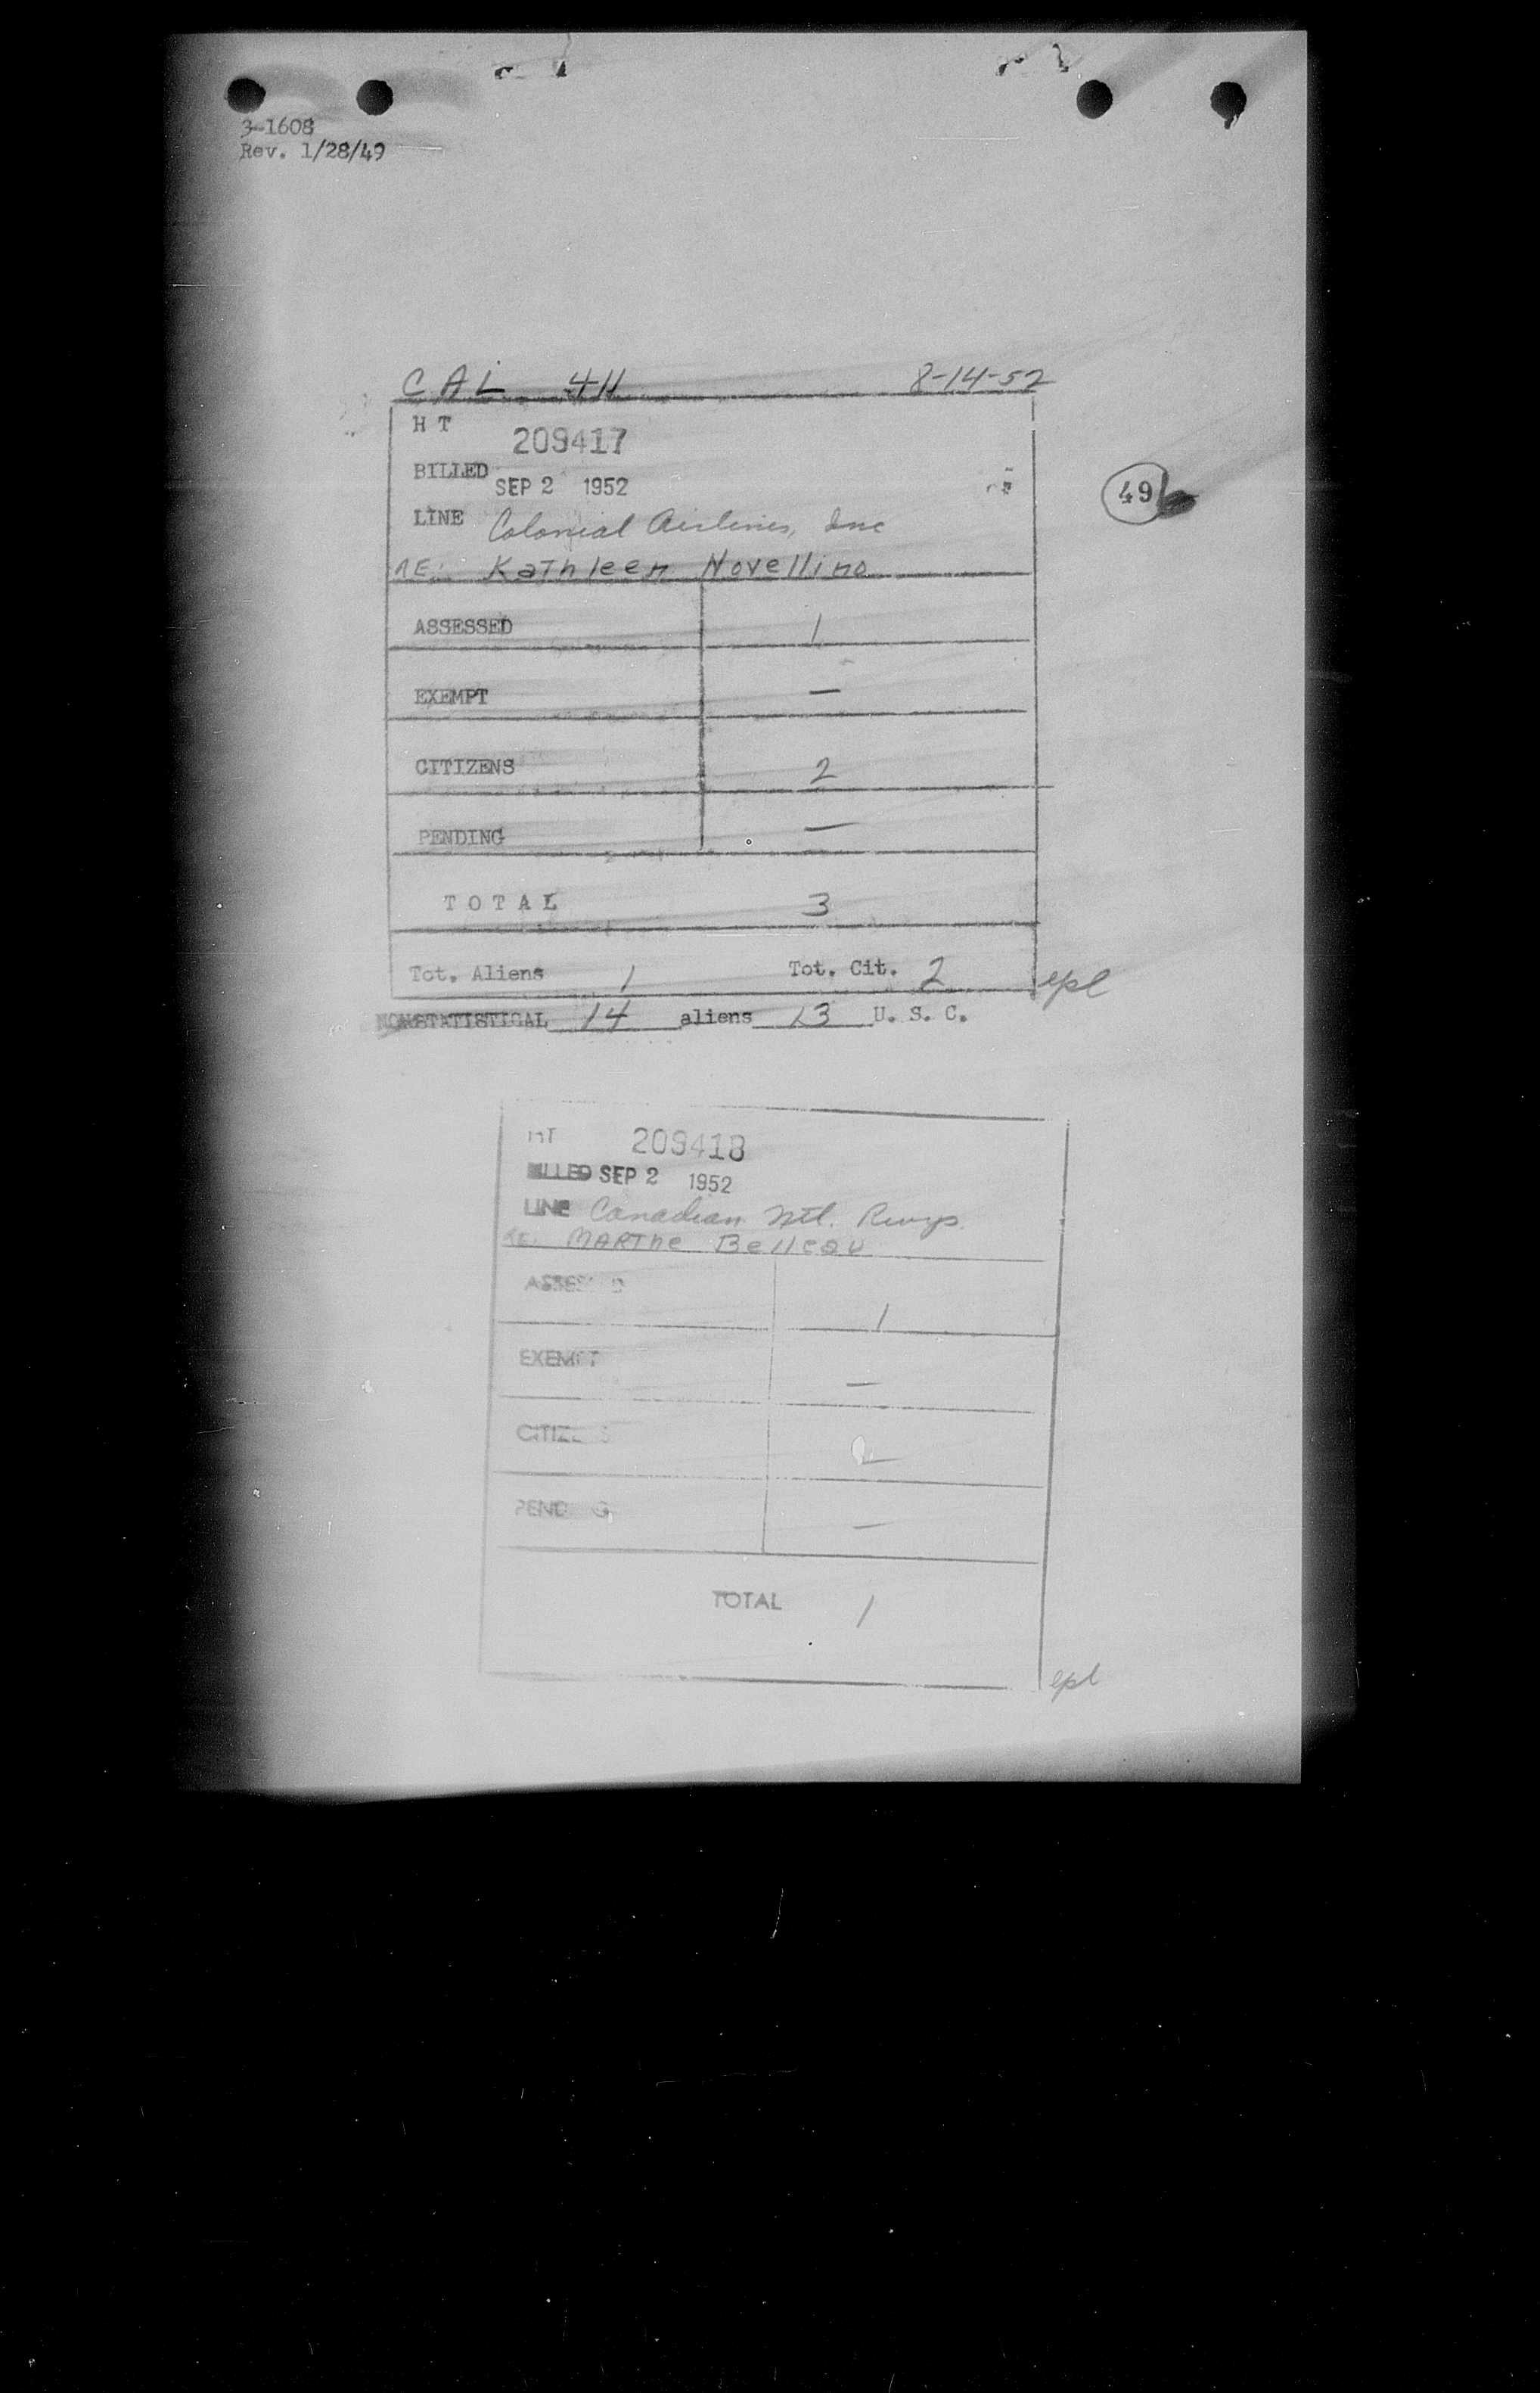 3-1608
Rev. 1/28/49
CAL 411 8-14-52
H T 209417
BILLED SEP 2 1952
LINE Colonial Airlines, Inc
RE: Kathleen Novellino
49
ASSESSED 1
EXEMPT —
CITIZENS 2
PENDING —
T O T A L 3
Tot. Aliens 1 Tot. Cit. 2 epl
NONSTATISTICAL 14 aliens 13 U. S. C.
HT 209418
BILLED SEP 2 1952
LINE Canadian Ntl. Rwys.
RE: MARThe Belleau
ASSESSED 1
EXEMPT —
CITIZENS
PENDING —
TOTAL 1
epl